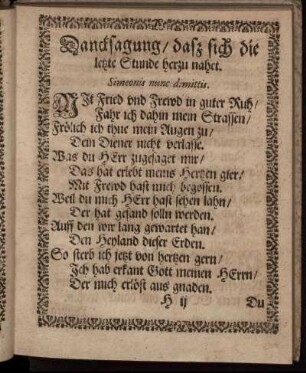 Dancksagung/ dasz sich die
letzte Stunde herzu nahet.
Simeonis nunc dimittis.
MIt Fried vnd Frewd in guter Ruh/
Fahr ich dahin mein Strassen/
Frölich ich thue mein Augen zu/
Dein Diener nicht verlasse.
Was du HErr zugesaget mir/
Das hat erlebt meins Hertzen gier/
Mit Frewd hast mich begossen.
Weil du mich HErr hast sehen lahn/
Der hat gesand solln werden.
Auff den wir lang gewartet han/
Den Heyland dieser Erden.
So sterb ich jetzt von hertzen gern/
Ich hab erkant Gott meinen HErrn/
Der mich erlöst aus gnaden.
H ij Du